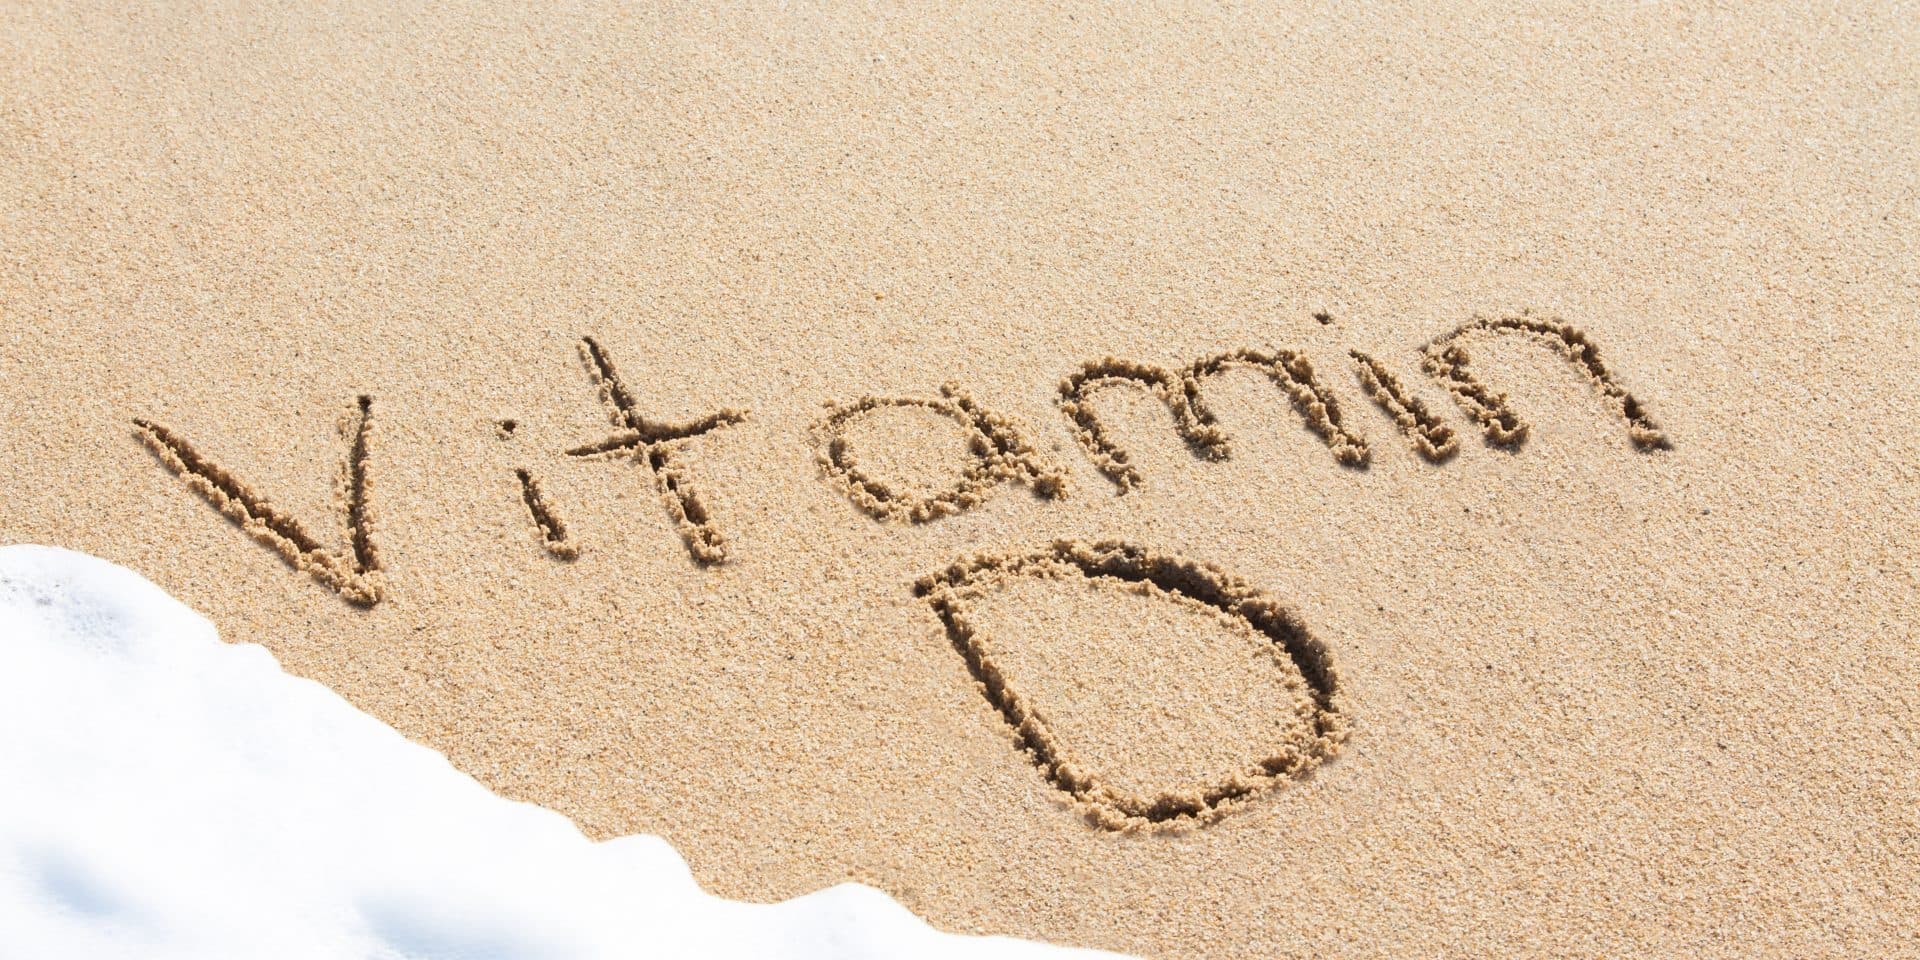 Vitamin
D